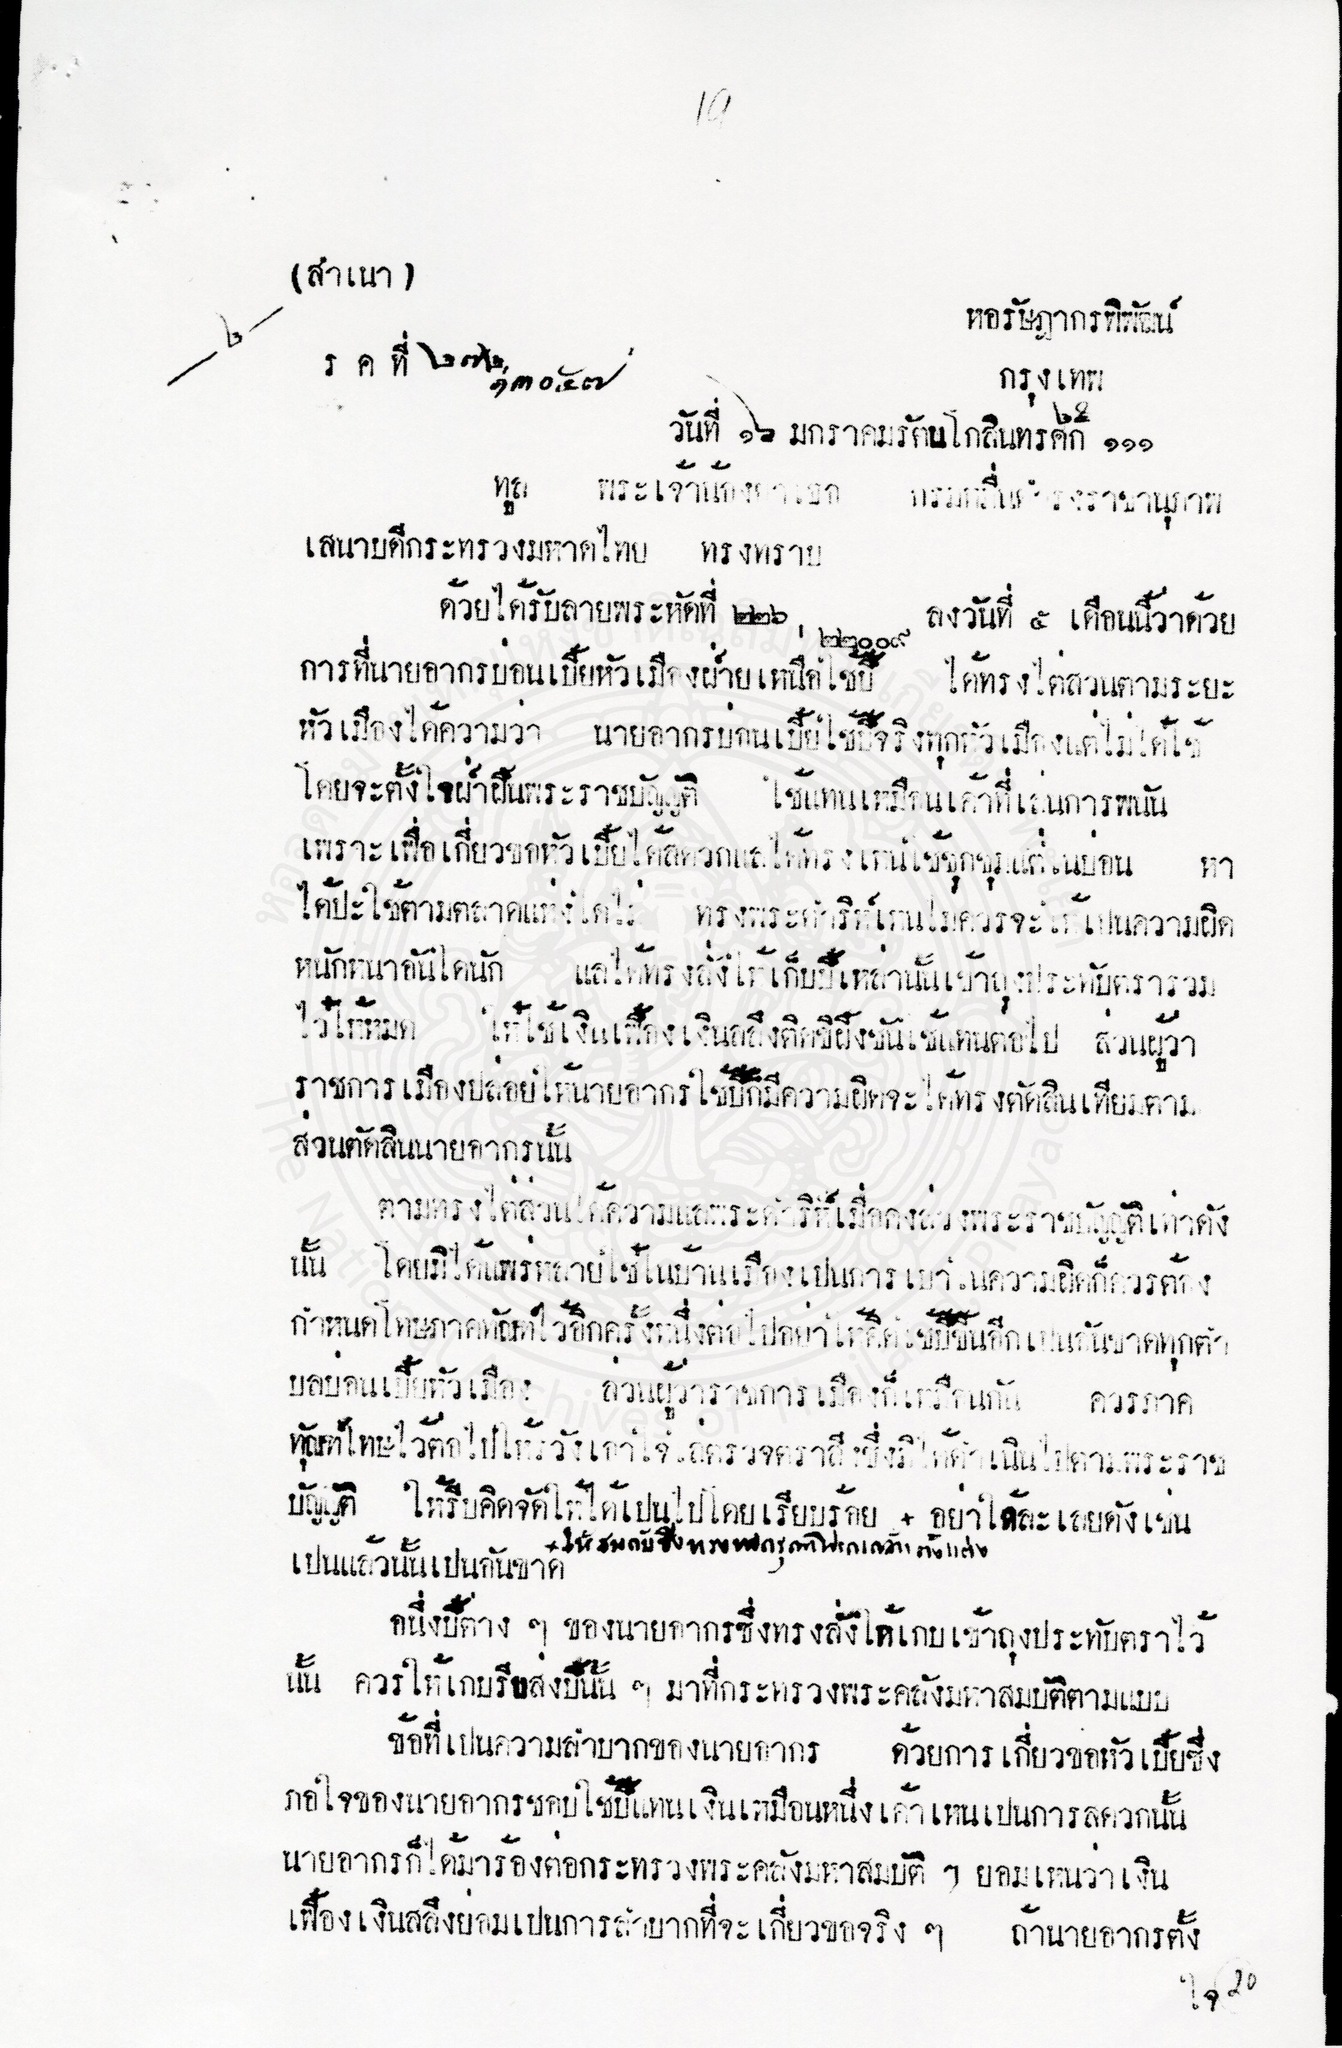 19
(สำเนา)
๒
หอรัษฎากรพิพัฒน์
ร ค ที่ ๒๗๒ ๑๓๐๕๗
กรุงเทพ
๒๕
วันที่ ๑๖ มกราคมรัตนโกสินทรศก ๑๑๑
ทูล พระเจ้าน้องยาเธอ กรมหมื่นดำรงราชานุภาพ
เสนาบดีกระทรวงมหาดไทย ทรงทราบ
ด้วยได้รับลายพระหัดที่ ๒๒๖ ๒๒๐๐๙ ลงวันที่ ๕ เดือนนี้ว่าด้วย
การที่นายอากรบ่อนเบี้ยหัวเมืองฝ่ายเหนือใช้บี้ ได้ทรงไต่สวนตามระยะ
หัวเมืองได้ความว่า นายอากรบ่อนเบี้ยใช้บี้จริงทุกหัวเมืองแต่ไม่ได้ใช้
โดยจะตั้งใจฝ่าฝืนพระราชบัญญัติ ใช้แทนเหมือนเค้าที่เล่นการพนัน
เพราะเพื่อเกี่ยวขอหัวเบี้ยได้สดวกแลได้ทรงเหนใช้ชุกชุมแต่ในบ่อน หา
ได้ปะใช้ตามตลาดแห่งใดไม่ ทรงพระดำริห์เหนไม่ควรจะให้เปนความผิด
หนักหนาอันใดนัก แลได้ทรงสั่งให้เก็บบี้เหล่านั้นเข้าถุงประทับตรารวม
ไว้ให้หมด ให้ใช้เงินเฟื้องเงินสลึงติดขี้ผึ้งชันใช้แทนต่อไป ส่วนผู้ว่า
ราชการเมืองปล่อยให้นายอากรใช้บี้ก็มีความผิดจะได้ทรงตัดสินเทียมตาม
ส่วนตัดสินนายอากรนั้น
ตามทรงไต่สวนได้ความแลพระดำริห์เมื่อคงล่วงพระราชบัญญัติเท่าดัง
นั้น โดยมิได้แพร่หลายใช้ในบ้านเมืองเปนการเบาในความผิดก็ควรต้อง
กำหนดโทษภาคทัณฑ์ไว้อีกครั้งหนึ่งต่อไปอย่าให้คิดใช้บี้ขึ้นอีกเปนอันขาดทุกตำ
บลบ่อนเบี้ยหัวเมือง ส่วนผู้ว่าราชการเมืองก็เหมือนกัน ควรภาค
ทัณฑ์โทษไว้ต่อไปให้ระวังเอาใจใส่ตรวจตราสิ่งซึ่งมิได้ดำเนินไปตามพระราช
บัญญัติ ให้รีบคิดจัดให้ได้เปนไปโดยเรียบร้อย + อย่าให้ละเลยดังเช่น
+ ให้สมกับซึ่งทรงพระกรุณาโปรดเกล้าฯ ตั้งแต่ง
เปนแล้วนั้นเปนอันขาด
อนึ่งบี้ต่าง ๆ ของนายอากรซึ่งทรงสั่งให้เกบเข้าถุงประทับตราไว้
นั้น ควรให้เกบรีบส่งบี้นั้น ๆ มาที่กระทรวงพระคลังมหาสมบัติตามแบบ
ข้อที่เปนความลำบากของนายอากร ด้วยการเกี่ยวขอหัวเบี้ยซึ่ง
ภอใจของนายอากรชอบใช้บี้แทนเงินเหมือนหนึ่งเค้าเหนเปนการสดวกนั้น
นายอากรก็ได้มาร้องต่อกระทรวงพระคลังมหาสมบัติ ๆ ยอมเหนว่าเงิน
เฟื้องเงินสลึงย่อมเปนการลำบากที่จะเกี่ยวขอจริง ๆ ถ้านายอากรตั้ง
ใจ
20